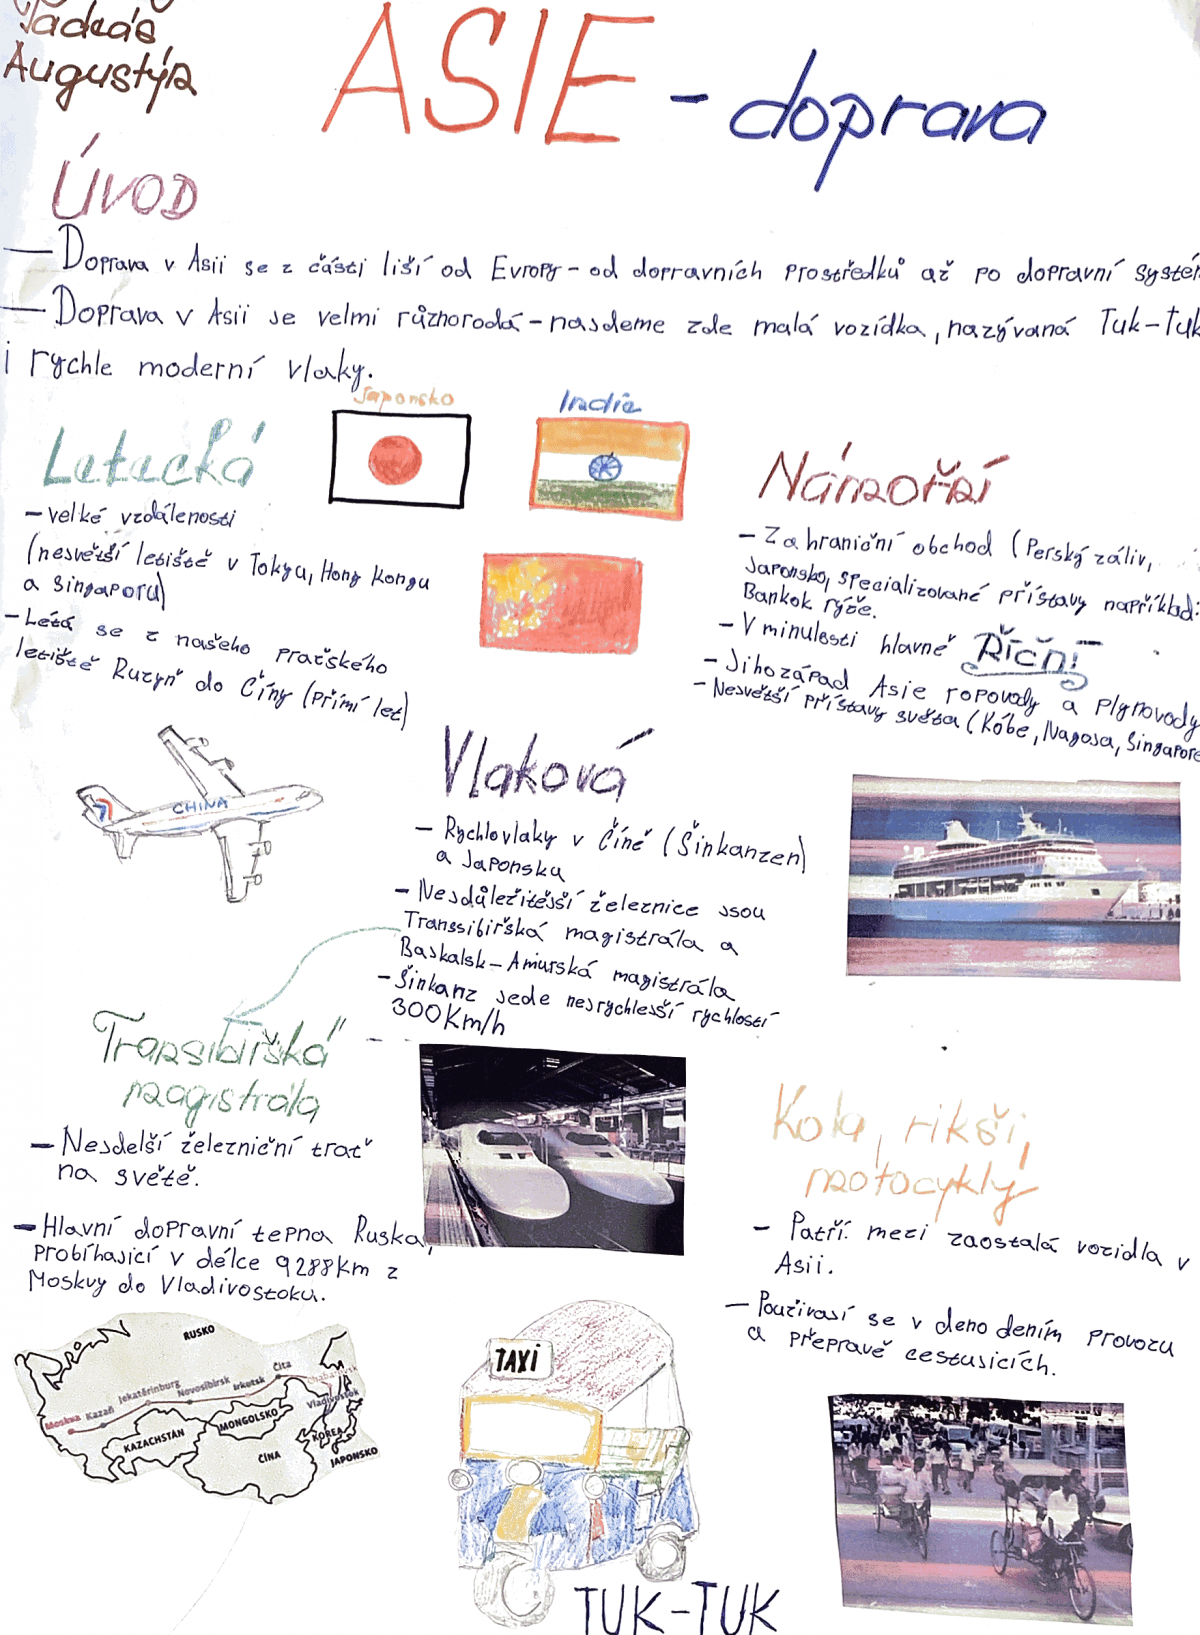 Augustýn
ASIE - doprava
ÚVOD
— Doprava v Asii se z části liší od Evropy - od dopravních prostředků až po dopravní systém
— Doprava v Asii se velmi různorodá - najdeme zde malá vozídka, nazývaná Tuk-Tuk
i rychle moderní vlaky.
Japonsko
Indie
Letecká
- velké vzdálenosti
(nejvetší letiště v Tokyu, Hong Kongu
a Singaporu)
- Létá se z našeho pražského
letiště Ruzyň do Číny (přímí let)
CHINA
Námořní
- Zahraniční obchod (Perský záliv,
Japonsko, specializované přístavy například:
Bankok rýže.
- V minulosti hlavně Říční
- Jihozápad Asie ropovody a plynovody
- Nejvetší přístavy světa (Kóbe, Nagoja, Singapore
Vlaková
- Rychlovlaky v Číně (Šinkanzen)
a Japonsku
- Nejdůležitější železnice jsou
Transsibiřská magistrála a
Bajkalsk-Amurská magistrála
- Šinkanz jede nejrychlejší rychlostí
300Km/h
Transibiřská
magistrála
- Nejdelší železniční trať
na světě.
- Hlavní dopravní tepna Ruska,
probíhajicí v délce 9288Km z
Moskvy do Vladivostoku.
RUSKO
Moskva Kazaň Jekatěrinburg Novosibirsk Irkutsk Čita Chabarovsk
Vladivostok
KAZACHSTÁN
MONGOLSKO
ČÍNA
KOREA
JAPONSKO
TAXI
TUK-TUK
Kola, rikši,
motocykly
- Patří mezi zaostalá vozidla v
Asii.
- Použivají se v deno dením provozu
a přepravě cestujicích.